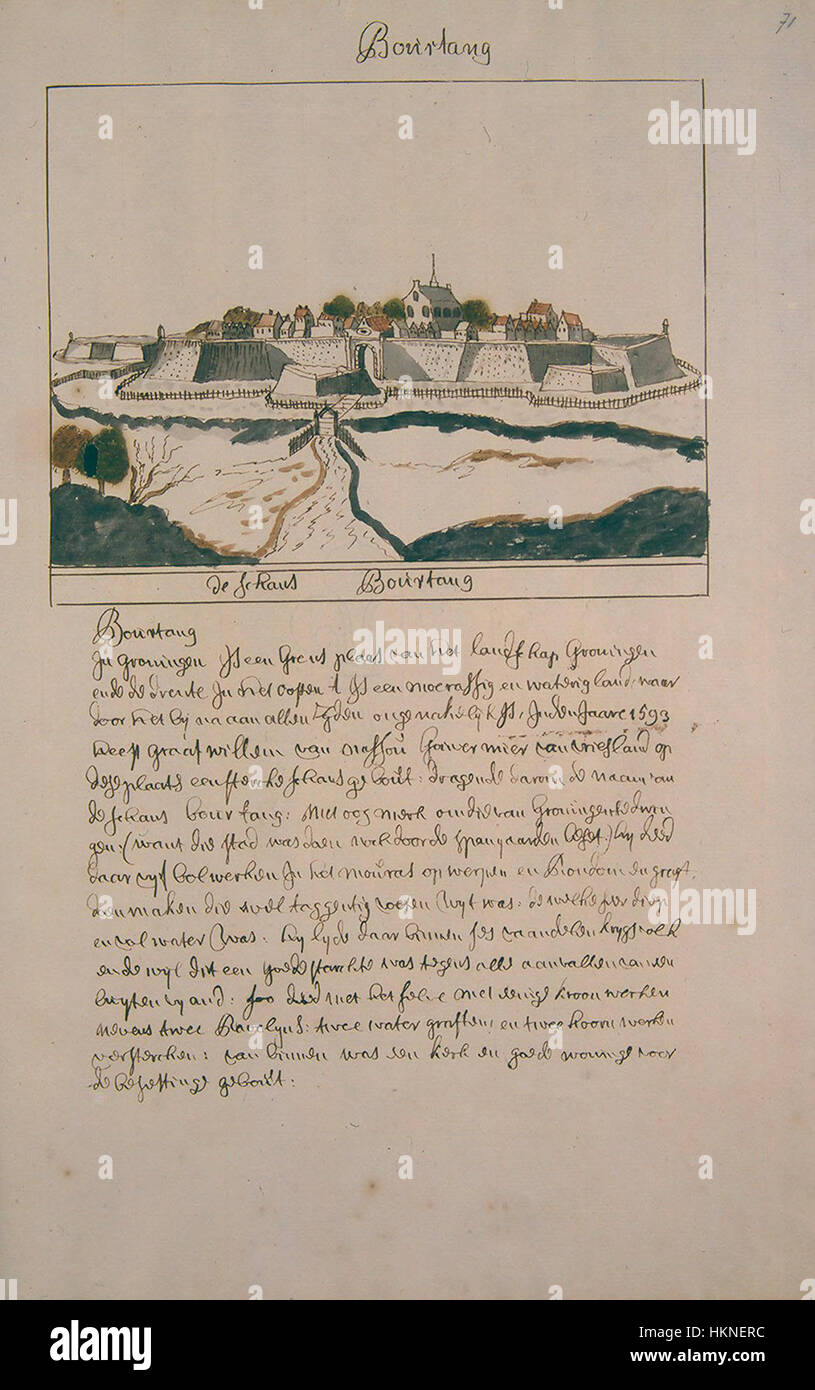 71
Bourtang
de schans Bourtang
Bourtang
In groningen Is een Grens plaets van het landschap Groningen
ende de drente In het oosten t Is een moerassig en waterig land, waar
door het bij na aan allen Zyden ongenakelijk Is, In den Jaare 1593
heeft graaf willem van nassou Gouverneur van vriesland op
dese plaets een stercke schans gebout: dragende daarom de naam van
de schans bourtang: met oogmerk om die van Groningen te dwin
gen: (want die stad was doen noch door de spanjaarden beset:) hy deed
daar vyf bolwerken In het mouras opwerpen en Rondom een graft
doen maken die wel taggentig voeten wyt was: de welke seer diep
en vol water was: hy lyde daar binnen ses vaandelen krygsvolk
ende wyl dit een goede sterckte was tegens alle aanvallen van den
buyten vyand: soo deed men het selve met eenige kroon werken
nevens twee Ravelyns: twee water graften, en twee hoorn werken
verstercken: van binnen was een kerk en goede woninge voor
de besettinge gebout:
alamy
Image ID: HKNERC
www.alamy.com